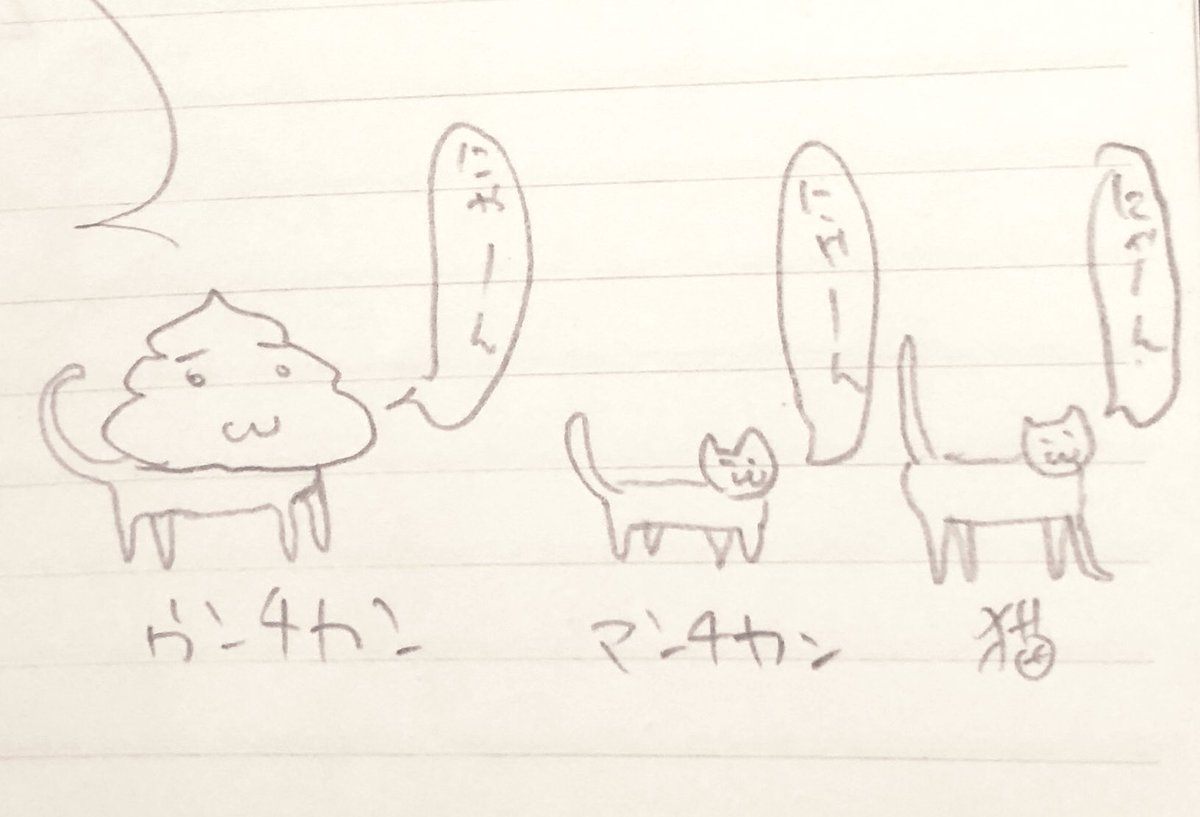 にゃーん
にゃーん
にゃーん
猫
マンチカン
ウンチカン